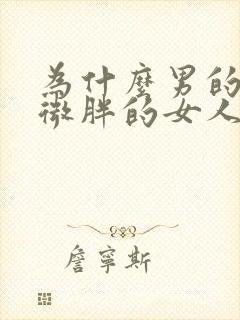 為什麼男的
微胖的女人
詹寧斯